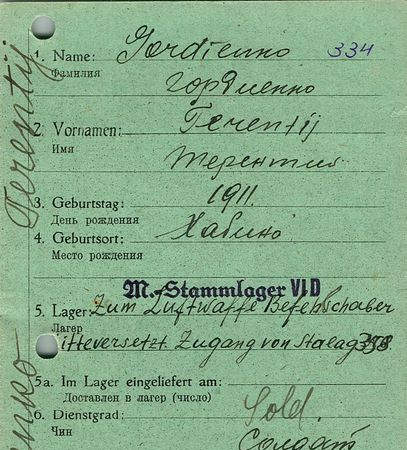 1. Name: Gordienko 334
Фамилия
Гордиенко
2. Vornamen: Terentij
Имя
Терентий
3. Geburtstag: 1911.
День рождения
4. Geburtsort: Хабино
Место рождения
M.-Stammlager VI D
5. Lager: Zum Luftwaffe Befehlshaber
Лагерь
Mitte versetzt Zugang von Stalag
5a. Im Lager eingeliefert am:
Доставлен в лагер (число)
6. Dienstgrad: Sold.
Чин
Солдат
Terentij